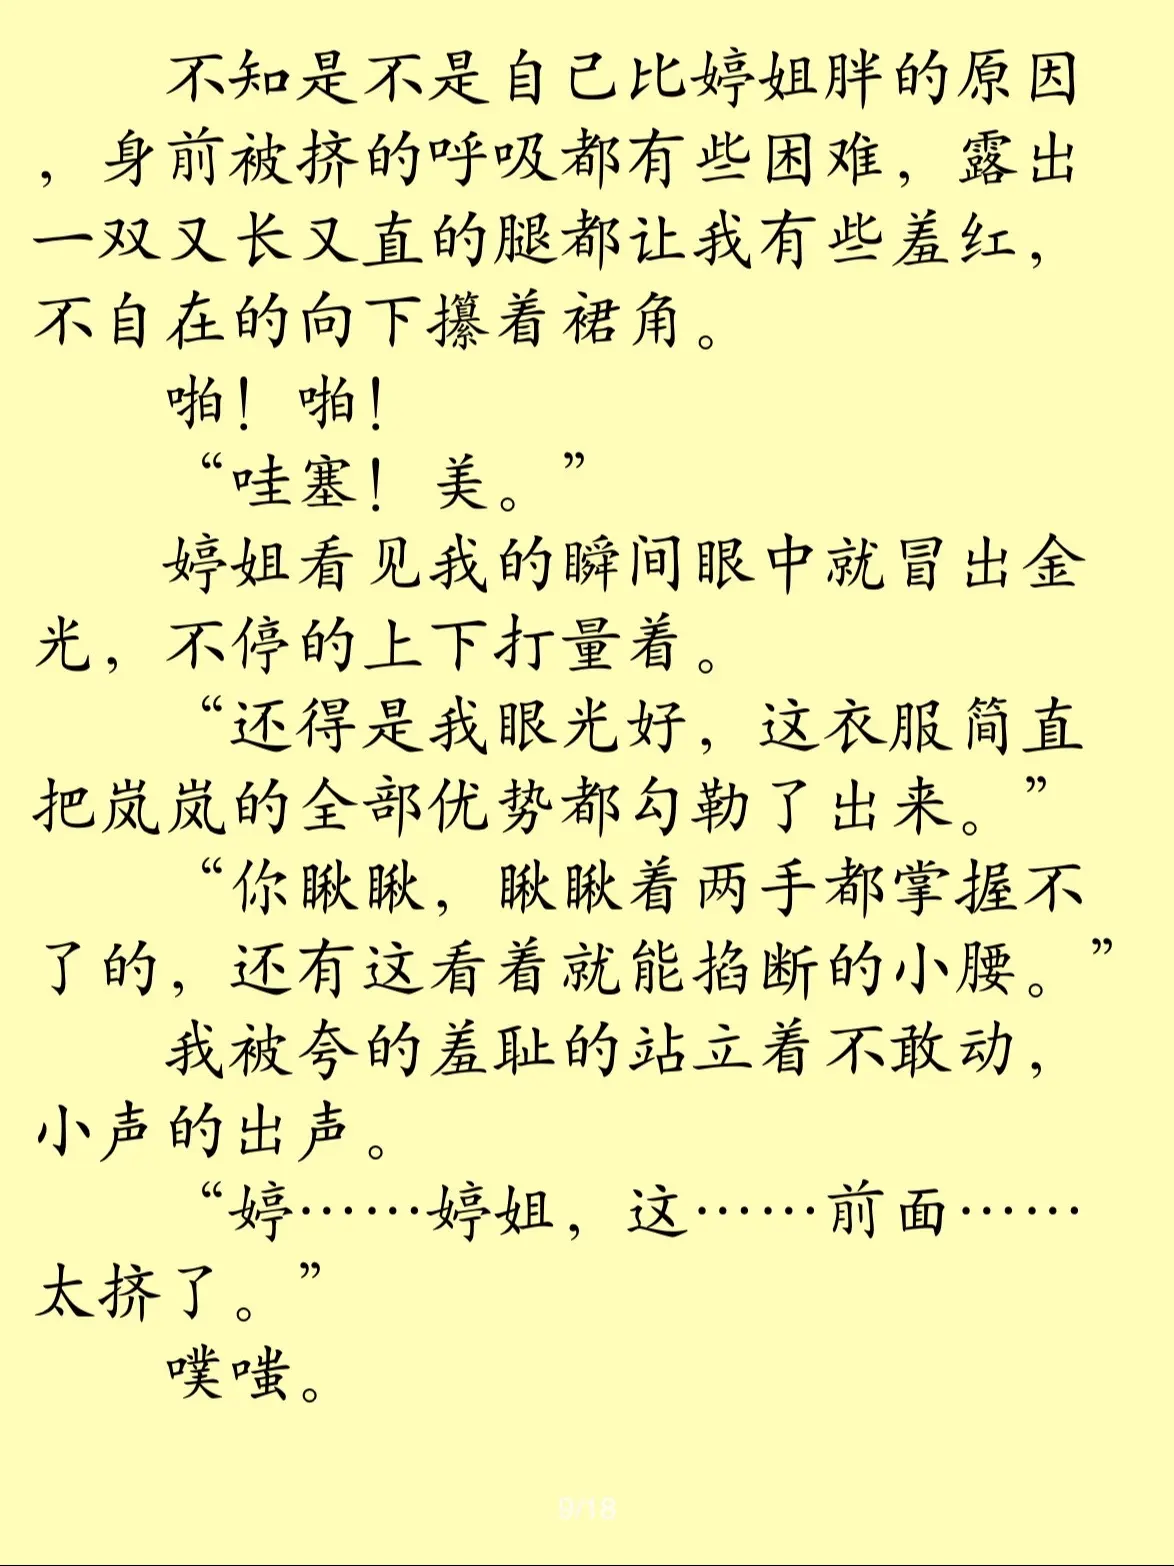 不知是不是自己比婷姐胖的原因
，身前被挤的呼吸都有些困难，露出
一双又长又直的腿都让我有些羞红，
不自在的向下攥着裙角。
啪！啪！
“哇塞！美。”
婷姐看见我的瞬间眼中就冒出金
光，不停的上下打量着。
“还得是我眼光好，这衣服简直
把岚岚的全部优势都勾勒了出来。”
“你瞅瞅，瞅瞅着两手都掌握不
了的，还有这看着就能掐断的小腰。”
我被夸的羞耻的站立着不敢动，
小声的出声。
“婷……婷姐，这……前面……
太挤了。”
噗嗤。
9/18